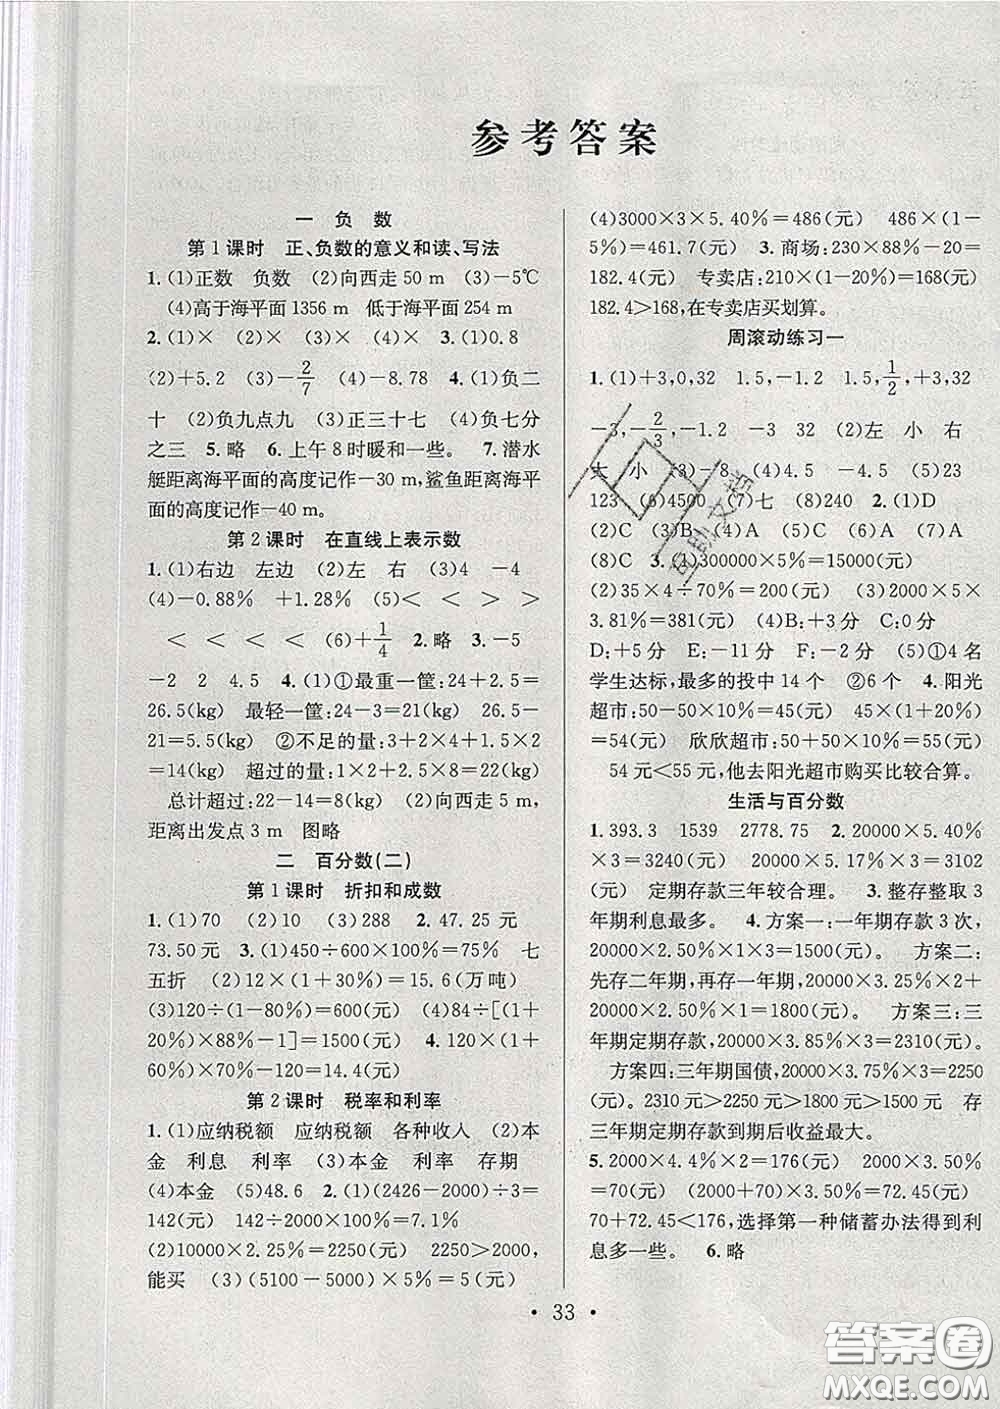 参考答案
一 负 数
第1课时 正、负数的意义和读、写法
1.(1)正数 负数 (2)向西走50 m (3)－5℃
(4)高于海平面1356 m 低于海平面254 m
2.(1)× (2)× (3)× 3.(1)0.8
(2)＋5.2 (3)－2/7 (4)－8.78 4.(1)负二
十 (2)负九点九 (3)正三十七 (4)负七分
之三 5.略 6.上午8时暖和一些。 7.潜水
艇距离海平面的高度记作－30 m,鲨鱼距离海平面
的高度记作－40 m。
第2课时 在直线上表示数
1.(1)右边 左边 (2)左 右 (3)4 －4
(4)－0.88% ＋1.28% (5)＜ ＜ ＞ ＞
＜ ＜ ＜ ＜ (6)＋1/4 2.略 3.－5
－2 2 4.5 4.(1)①最重一筐:24＋2.5＝
26.5(kg) 最轻一筐:24－3＝21(kg) 26.5－
21＝5.5(kg) ②不足的量:3＋2×4＋1.5×2
＝14(kg) 超过的量:1×2＋2.5×8＝22(kg)
总计超过:22－14＝8(kg) (2)向西走5 m,
距离出发点3 m 图略
二 百分数(二)
第1课时 折扣和成数
1.(1)70 (2)10 (3)288 2.47.25元
73.50元 3.(1)450÷600×100%＝75% 七
五折 (2)12×(1＋30%)＝15.6(万吨)
(3)120÷(1－80%)＝600(元) (4)84÷[(1＋
20%)×88%－1]＝1500(元) 4.120×(1＋
20%)×80%＝120＝14.4(元)
第2课时 税率和利率
1.(1)应纳税额 应纳税额 各种收入 (2)本
金 利息 利率 (3)本金 利率 存期
(4)本金 (5)48.6 2.(1)(2426－2000)÷3＝
142(元) 142÷2000×100%＝7.1%
(2)10000×2.25%＝2250(元) 2250＞2000,
能买 (3)(5100－5000)×5%＝5(元)
(4)3000×3×5.40%＝486(元) 486×(1－
5%)＝461.7(元) 3.商场:230×88%－20＝
182.4(元) 专卖店:210×(1－20%)＝168(元)
182.4＞168,在专卖店买划算。
周滚动练习一
1.(1)＋3,0,32 1.5,－1.2 1.5,1/2,＋3,32
－3,－2/3,－1.2 －3 32 (2)左 小 右
大 小 (3)－8 (4)4.5 －4.5 (5)23
123 (6)4500 (7)七 (8)240 2.(1)D
(2)C (3)B (4)A (5)C (6)A (7)A
(8)C 3.(1)300000×5%＝15000(元)
(2)35×4÷70%＝200(元) (3)2000×5×
3.81%＝381(元) (4)B:＋3分 C:0分
D:＋5分 E:－11分 F:－2分 (5)①4名
学生达标,最多的投中14个 ②6个 4.阳光
超市:50－50×10%＝45(元) 45×(1＋20%)
＝54(元) 欣欣超市:50＋50×10%＝55(元)
54元＜55元,他去阳光超市购买比较合算。
生活与百分数
1.393.3 1539 2778.75 2.20000×5.40%
×3＝3240(元) 20000×5.17%×3＝3102
(元) 定期存款三年较合理。 3.整存整取3
年期利息最多。 4.方案一:一年期存款3次,
20000×2.50%×1×3＝1500(元) 方案二:
先存二年期,再存一年期,20000×3.25%×2＋
20000×2.50%×1＝1800(元) 方案三:三
年期定期存款,20000×3.85%×3＝2310(元)
方案四:三年期国债,20000×3.75%×3＝2250
(元) 2310元＞2250元＞1800元＞1500元 存
三年期定期存款到期后收益最大。
5.2000×4.4%×2＝176(元) 2000×3.50%
＝70(元) (2000＋70)×3.50%＝72.45(元)
70＋72.45＜176,选择第一种储蓄办法得到利
息多一些。 6.略
· 33 ·
答案圈
MXQE.COM